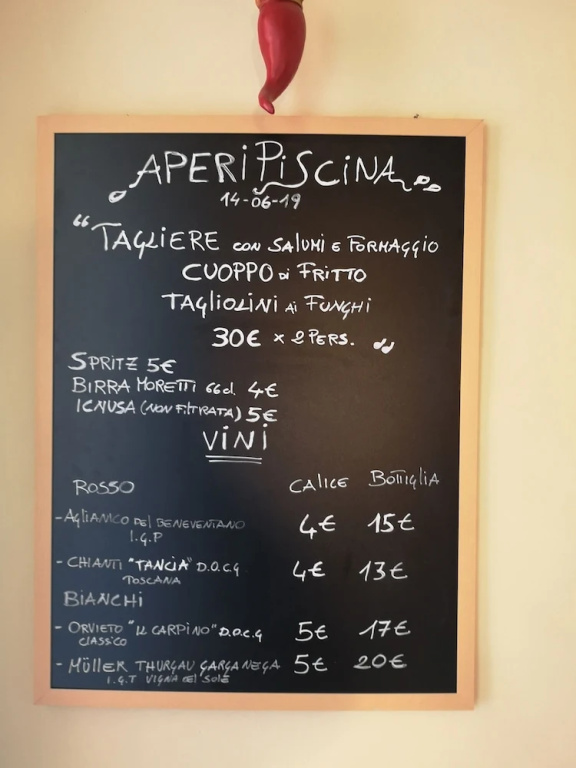 APERiPiSCiNA
14-06-19
“TAGLIERE CON SALUMI E FORMAGGIO
CUOPPO di FRITTO
TAGLIOLINI Ai FUNGHI
30€ x 2 PERS. „
SPRITZ 5€
BIRRA MORETTI 66cl. 4€
ICNUSA (NON FILTRATA) 5€
ViNi
ROSSO CALICE BOTTIGLIA
- AGLIANICO DEL BENEVENTANO 4€ 15€
I.G.P
- CHIANTI "TANCIA" D.O.C.G 4€ 13€
TOSCANA
BIANCHI
- ORVIETO "IL CARPINO" D.O.C.G 5€ 17€
CLASSICO
- MÜLLER THURGAU GARGANEGA 5€ 20€
I.G.T VIGNA del SOLE